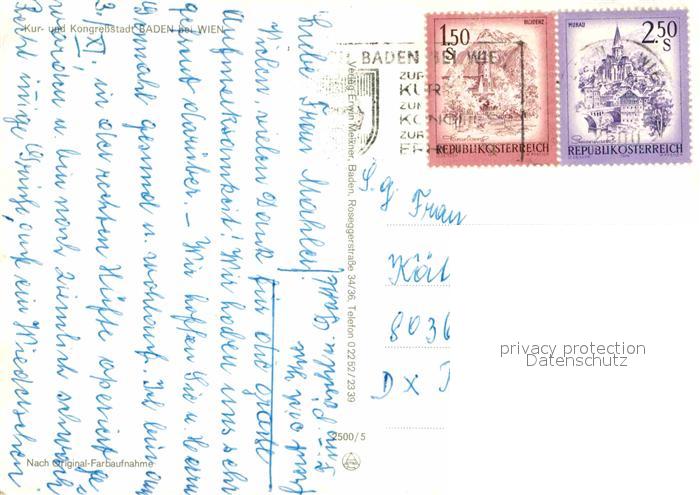 Kur- und Kongreßstadt BADEN bei WIEN
BADEN BEI WIEN
ZUR
KUR
ZUM
ZUR
BLUDENZ
1.50
S
REPUBLIK ÖSTERREICH
MURAU
2.50
S
REPUBLIK ÖSTERREICH
Verlag Erwin Meixner, Baden, Roseggerstraße 34/36, Telefon 0 22 52 / 23 39
S.g. Frau
8036
privacy protection
Datenschutz
Liebe Frau Mahler!
Vielen, vielen Dank für die große
Aufmerksamkeit! Wir haben uns sehr
gefreut darüber. – Wir hoffen Sie u. Herrn
gesund u. wohlauf. Ich bin am
3./XI. in der rechten Hüfte operiert
worden u. bin noch ziemlich schwach
innige Grüße auf ein Wiedersehen
2500/5
Nach Original-Farbaufnahme